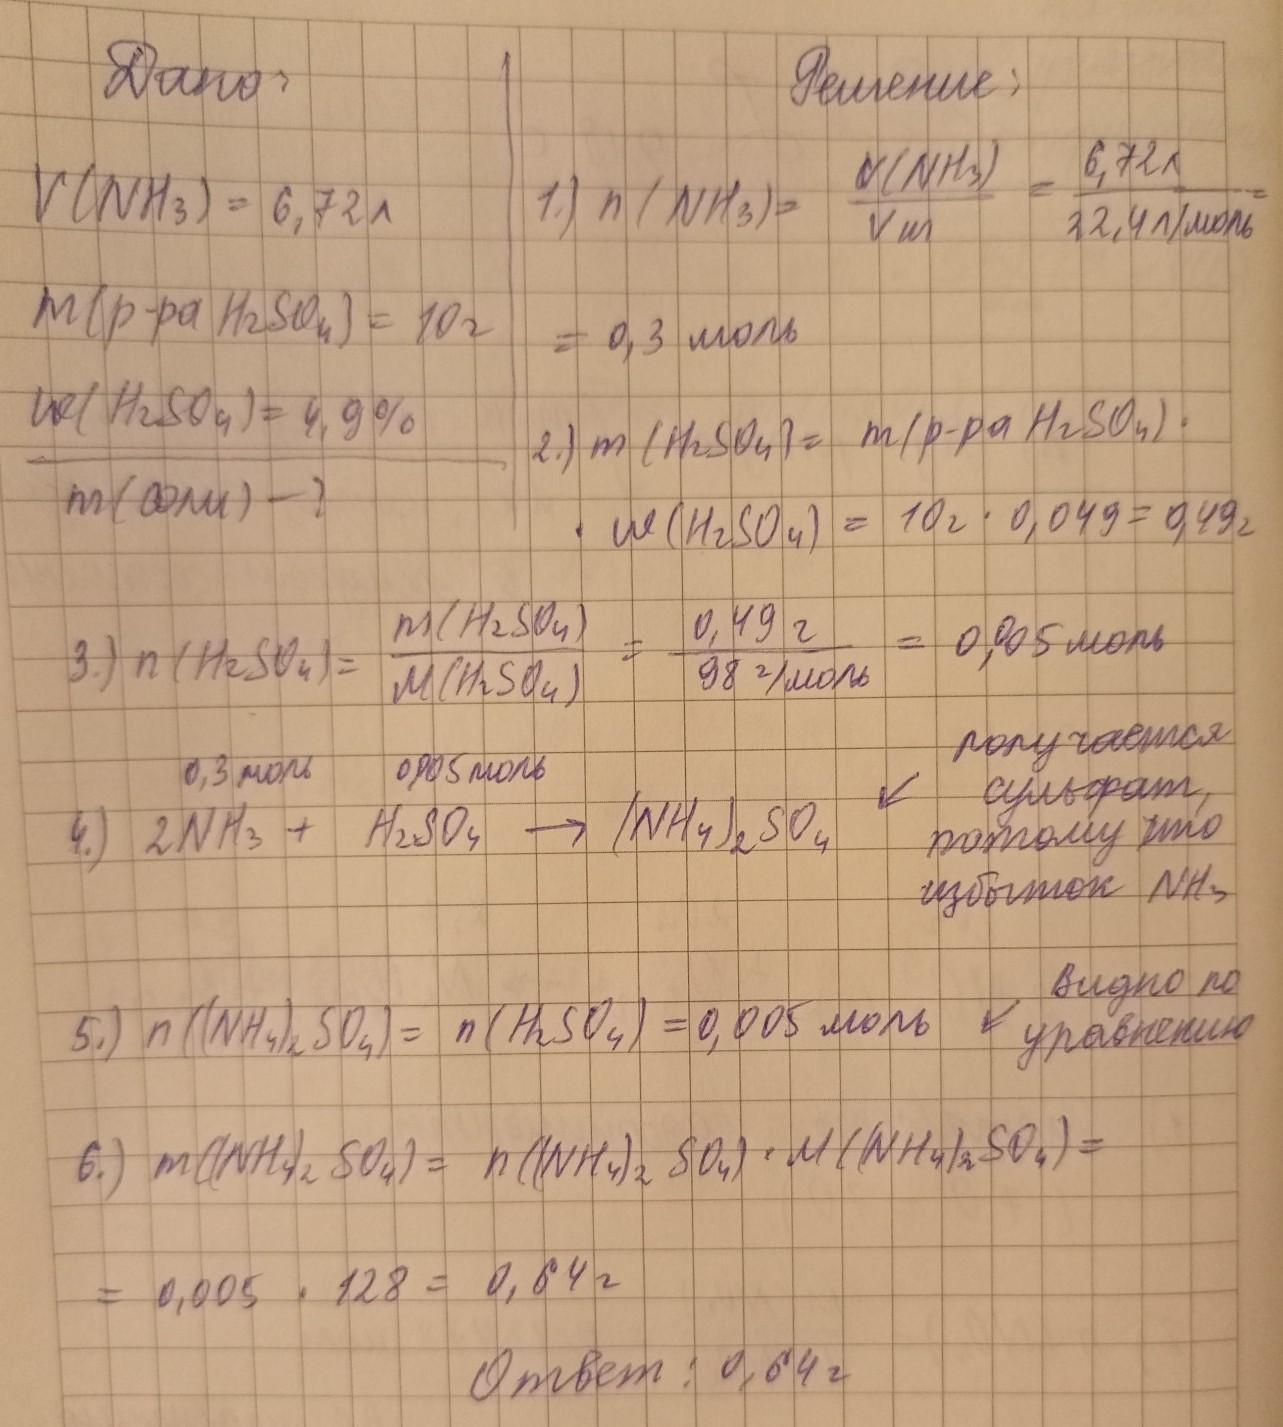 Дано:
V(NH₃) = 6,72 л
m(р-ра H₂SO₄) = 10 г
w(H₂SO₄) = 4,9%
m(соли) – ?
Решение:
1.) n(NH₃) = V(NH₃)/Vm = 6,72 л/22,4 л/моль =
= 0,3 моль
2.) m(H₂SO₄) = m(р-ра H₂SO₄) ·
· w(H₂SO₄) = 10 г · 0,049 = 0,49 г
3.) n(H₂SO₄) = m(H₂SO₄)/M(H₂SO₄) = 0,49 г/98 г/моль = 0,005 моль
0,3 моль 0,005 моль
4.) 2NH₃ + H₂SO₄ → (NH₄)₂SO₄ ↙
получается
сульфат,
потому что
избыток NH₃
5.) n((NH₄)₂SO₄) = n(H₂SO₄) = 0,005 моль ↙
видно по
уравнению
6.) m((NH₄)₂SO₄) = n((NH₄)₂SO₄) · M((NH₄)₂SO₄) =
= 0,005 · 128 = 0,64 г
Ответ: 0,64 г